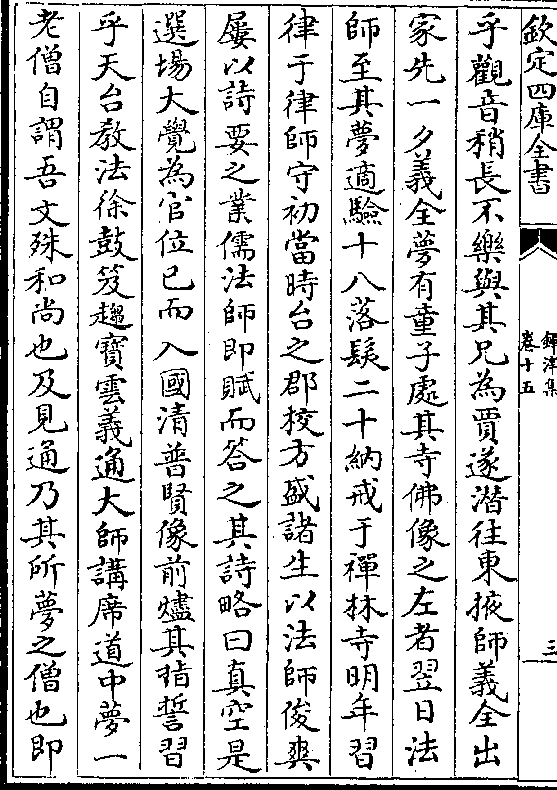 欽定四庫全書
鐔津集
卷十五
三
乎觀音稍長不樂與其兄為賈遂潛往東掖師義全出
家先一夕義全夢有童子處其寺佛像之左者翌日法
師至其夢適驗十八落髮二十納戒于禪林寺明年習
律于律師守初當時台之郡校方盛諸生以法師俊爽
屢以詩要之業儒法師即賦而答之其詩略曰真空是
選場大覺為官位已而入國清普賢像前燼其指誓習
乎天台教法徐鼓笈趨寶雲義通大師講席道中夢一
老僧自謂吾文殊和尚也及見通乃其所夢之僧也即